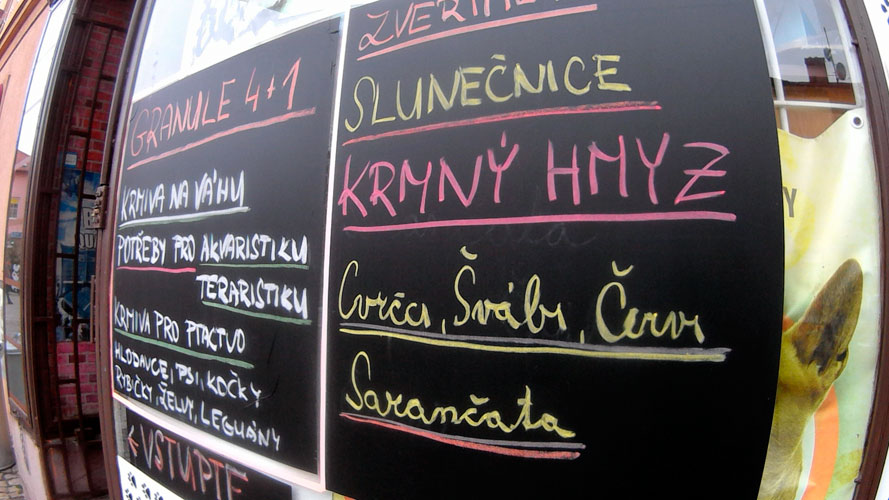 GRANULE 4+1
KRMIVA NA VÁHU
POTŘEBY PRO AKVARISTIKU
TERARISTIKU
KRMIVA PRO PTACTVO
HLODAVCE, PSI, KOČKY
RYBIČKY, ŽELVY, LEGUÁNY
← VSTUPTE
SLUNEČNICE
KRMNÝ HMYZ
Cvrčci, Švábi, Červi
Sarančata